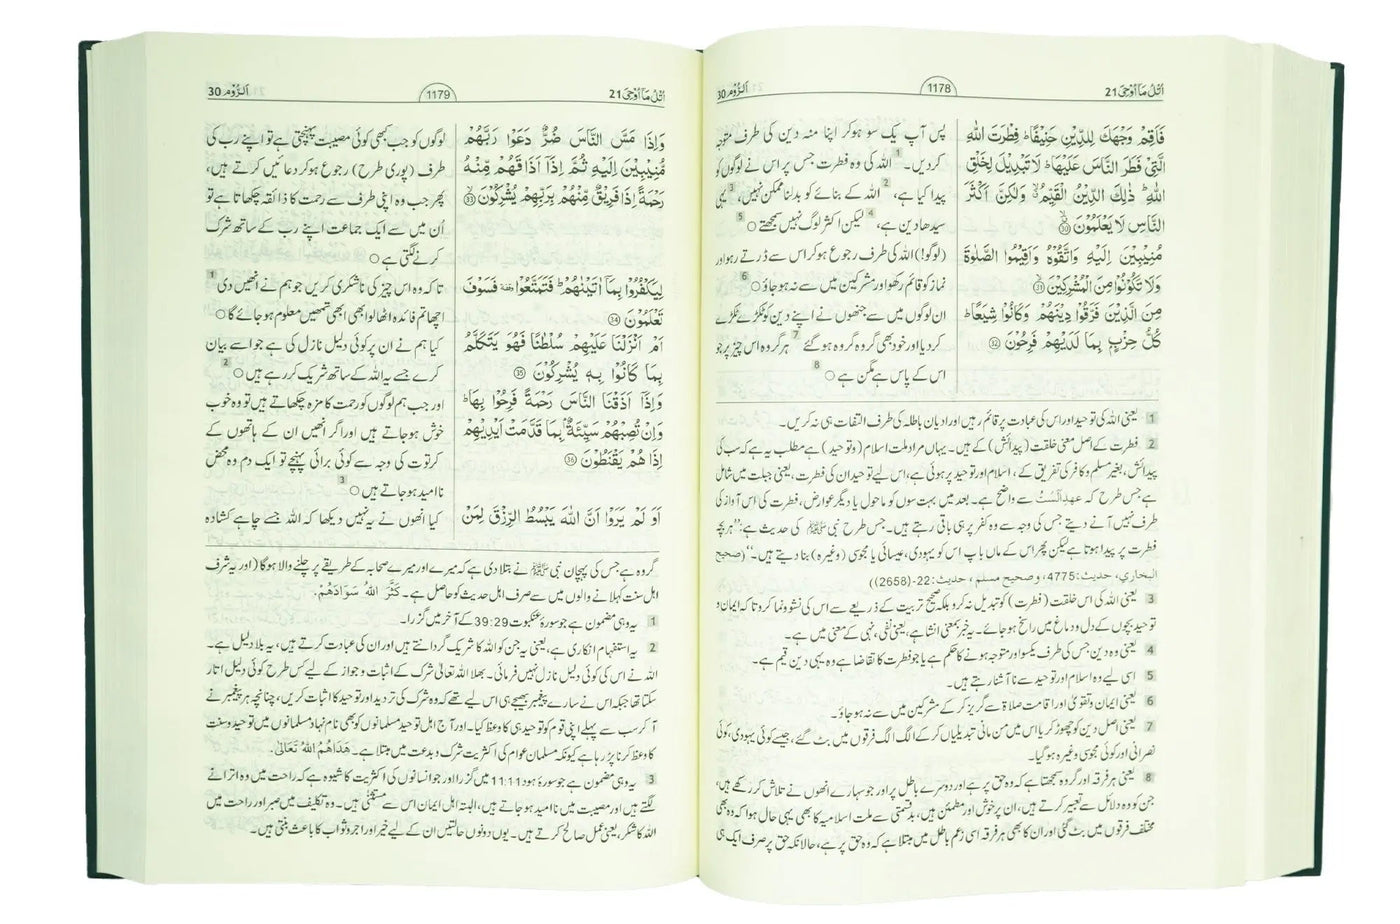 اُتْلُ مَا اُوْحِیَ 21
1178
اَلرُّوْم 30
فَاَقِمْ وَجْهَكَ لِلدِّيْنِ حَنِيْفًا ؕ فِطْرَتَ اللّٰهِ
الَّتِيْ فَطَرَ النَّاسَ عَلَيْهَا ؕ لَا تَبْدِيْلَ لِخَلْقِ
اللّٰهِ ؕ ذٰلِكَ الدِّيْنُ الْقَيِّمُ ۙ وَلٰكِنَّ اَكْثَرَ
النَّاسِ لَا يَعْلَمُوْنَ ۙ 30
مُنِيْبِيْنَ اِلَيْهِ وَاتَّقُوْهُ وَاَقِيْمُوا الصَّلٰوةَ
وَلَا تَكُوْنُوْا مِنَ الْمُشْرِكِيْنَ ۙ 31
مِنَ الَّذِيْنَ فَرَّقُوْا دِيْنَهُمْ وَكَانُوْا شِيَعًا ؕ
كُلُّ حِزْبٍۭ بِمَا لَدَيْهِمْ فَرِحُوْنَ 32
پس آپ یک سو ہوکر اپنا منہ دین کی طرف متوجہ
کردیں۔ 1 اللہ کی وہ فطرت جس پر اس نے لوگوں کو
پیدا کیا ہے، 2 اللہ کے بنائے کو بدلنا ممکن نہیں، 3 یہی
سیدھا دین ہے، 4 لیکن اکثر لوگ نہیں سمجھتے 5 ○
(لوگو!) اللہ کی طرف رجوع ہوکر اس سے ڈرتے رہو اور
نماز کو قائم رکھو اور مشرکین میں سے نہ ہو جاؤ 6 ○
ان لوگوں میں سے جنھوں نے اپنے دین کو ٹکڑے ٹکڑے
کردیا اور خود بھی گروہ گروہ ہو گئے 7 ہر گروہ اس چیز پر جو
اس کے پاس ہے مگن ہے 8 ○
1 یعنی اللہ کی توحید اور اس کی عبادت پر قائم رہیں اور ادیان باطلہ کی طرف التفات ہی نہ کریں۔
2 فطرت کے اصل معنی خلقت (پیدائش) کے ہیں۔ یہاں مراد ملت اسلام (و توحید) ہے مطلب یہ ہے کہ سب کی
پیدائش، بغیر مسلم و کافر کی تفریق کے، اسلام اور توحید پر ہوئی ہے، اس لیے توحید ان کی فطرت، یعنی جبلت میں شامل
ہے جس طرح کہ عہدِ اَلَسْتُ سے واضح ہے۔ بعد میں بہت سوں کو ماحول یا دیگر عوارض، فطرت کی اس آواز کی
طرف نہیں آنے دیتے جس کی وجہ سے وہ کفر پر ہی باقی رہتے ہیں۔ جس طرح نبی ﷺ کی حدیث ہے: ”ہر بچہ
فطرت پر پیدا ہوتا ہے لیکن پھر اس کے ماں باپ اس کو یہودی، عیسائی یا مجوسی (وغیرہ) بنا دیتے ہیں۔“ (صحیح
البخاري، حديث:4775، وصحیح مسلم، حدیث:22-(2658))
3 یعنی اللہ کی اس خلقت (فطرت) کو تبدیل نہ کرو بلکہ صحیح تربیت کے ذریعے سے اس کی نشوونما کرو تاکہ ایمان و
توحید بچوں کے دل و دماغ میں راسخ ہو جائے۔ یہ خبر بمعنی انشا ہے، یعنی نفی، نہی کے معنی میں ہے۔
4 یعنی وہ دین جس کی طرف یکسو اور متوجہ ہونے کا حکم ہے یا جو فطرت کا تقاضا ہے وہ یہی دین قیم ہے۔
5 اسی لیے وہ اسلام اور توحید سے نا آشنا رہتے ہیں۔
6 یعنی ایمان و تقویٰ اور اقامت صلاۃ سے گریز کرکے مشرکین میں سے نہ ہو جاؤ۔
7 یعنی اصل دین کو چھوڑ کر یا اس میں من مانی تبدیلیاں کر کے الگ الگ فرقوں میں بٹ گئے، جیسے کوئی یہودی، کوئی
نصرانی اور کوئی مجوسی وغیرہ ہو گیا۔
8 یعنی ہر فرقہ اور گروہ سمجھتا ہے کہ وہ حق پر ہے اور دوسرے باطل پر اور جو سہارے انھوں نے تلاش کر رکھے ہیں،
جن کو وہ دلائل سے تعبیر کرتے ہیں، ان پر خوش اور مطمئن ہیں، بدقسمتی سے ملت اسلامیہ کا بھی یہی حال ہوا کہ وہ بھی
مختلف فرقوں میں بٹ گئی اور ان کا بھی ہر فرقہ اسی زعم باطل میں مبتلا ہے کہ وہ حق پر ہے، حالانکہ حق پر صرف ایک ہی
اُتْلُ مَا اُوْحِیَ 21
1179
اَلرُّوْم 30
وَاِذَا مَسَّ النَّاسَ ضُرٌّ دَعَوْا رَبَّهُمْ
مُّنِيْبِيْنَ اِلَيْهِ ثُمَّ اِذَآ اَذَاقَهُمْ مِّنْهُ
رَحْمَةً اِذَا فَرِيْقٌ مِّنْهُمْ بِرَبِّهِمْ يُشْرِكُوْنَ ۙ 33
لِيَكْفُرُوْا بِمَآ اٰتَيْنٰهُمْ ؕ فَتَمَتَّعُوْا ۥ فَسَوْفَ
تَعْلَمُوْنَ 34
اَمْ اَنْزَلْنَا عَلَيْهِمْ سُلْطٰنًا فَهُوَ يَتَكَلَّمُ
بِمَا كَانُوْا بِهٖ يُشْرِكُوْنَ 35
وَاِذَآ اَذَقْنَا النَّاسَ رَحْمَةً فَرِحُوْا بِهَا ؕ
وَاِنْ تُصِبْهُمْ سَيِّئَةٌۢ بِمَا قَدَّمَتْ اَيْدِيْهِمْ
اِذَا هُمْ يَقْنَطُوْنَ 36
اَوَ لَمْ يَرَوْا اَنَّ اللّٰهَ يَبْسُطُ الرِّزْقَ لِمَنْ
لوگوں کو جب کبھی کوئی مصیبت پہنچتی ہے تو اپنے رب کی
طرف (پوری طرح) رجوع ہوکر دعائیں کرتے ہیں،
پھر جب وہ اپنی طرف سے رحمت کا ذائقہ چکھاتا ہے تو
اُن میں سے ایک جماعت اپنے رب کے ساتھ شرک
کرنے لگتی ہے ○
تاکہ وہ اس چیز کی ناشکری کریں جو ہم نے انھیں دی 1
اچھا تم فائدہ اٹھالو ابھی ابھی تمھیں معلوم ہو جائے گا ○
کیا ہم نے ان پر کوئی دلیل نازل کی ہے جو اسے بیان
کرے جسے یہ اللہ کے ساتھ شریک کر رہے ہیں 2 ○
اور جب ہم لوگوں کو رحمت کا مزہ چکھاتے ہیں تو وہ خوب
خوش ہو جاتے ہیں اور اگر انھیں ان کے ہاتھوں کے
کرتوت کی وجہ سے کوئی برائی پہنچے تو ایک دم وہ محض
ناامید ہو جاتے ہیں 3 ○
کیا انھوں نے یہ نہیں دیکھا کہ اللہ جسے چاہے کشادہ
گروہ ہے جس کی پہچان نبی ﷺ نے بتلا دی ہے کہ میرے اور میرے صحابہ کے طریقے پر چلنے والا ہوگا (اور یہ شرف
اہل سنت کہلانے والوں میں سے صرف اہل حدیث کو حاصل ہے۔ كَثَّرَ اللّٰهُ سَوَادَهُمْ.
1 یہ وہی مضمون ہے جو سورۂ عنکبوت 39:29 کے آخر میں گزرا۔
2 یہ استفہام انکاری ہے، یعنی یہ جن کو اللہ کا شریک گردانتے ہیں اور ان کی عبادت کرتے ہیں، یہ بلا دلیل ہے۔
اللہ نے اس کی کوئی دلیل نازل نہیں فرمائی۔ بھلا اللہ تعالیٰ شرک کے اثبات و جواز کے لیے کس طرح کوئی دلیل اتار
سکتا تھا جبکہ اس نے سارے پیغمبر بھیجے ہی اس لیے تھے کہ وہ شرک کی تردید اور توحید کا اثبات کریں، چنانچہ ہر پیغمبر نے
آ کر سب سے پہلے اپنی قوم کو توحید ہی کا وعظ کیا۔ اور آج اہل توحید مسلمانوں کو بھی نام نہاد مسلمانوں میں توحید و سنت
کا وعظ کرنا پڑ رہا ہے کیونکہ مسلمان عوام کی اکثریت شرک و بدعت میں مبتلا ہے۔ هَدَاهُمُ اللّٰهُ تَعَالٰى.
3 یہ وہی مضمون ہے جو سورۂ ہود 11:11 میں گزرا اور جو انسانوں کی اکثریت کا شیوہ ہے کہ راحت میں وہ اترانے
لگتے ہیں اور مصیبت میں ناامید ہو جاتے ہیں، البتہ اہل ایمان اس سے مستثنیٰ ہیں۔ وہ تکلیف میں صبر اور راحت میں
اللہ کا شکر، یعنی عمل صالح کرتے ہیں۔ یوں دونوں حالتیں ان کے لیے خیر اور اجر و ثواب کا باعث بنتی ہیں۔